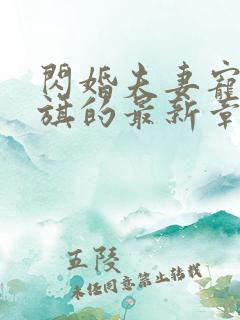 閃婚夫妻寵
旗的最新章
五陵
未經同意禁止轉載